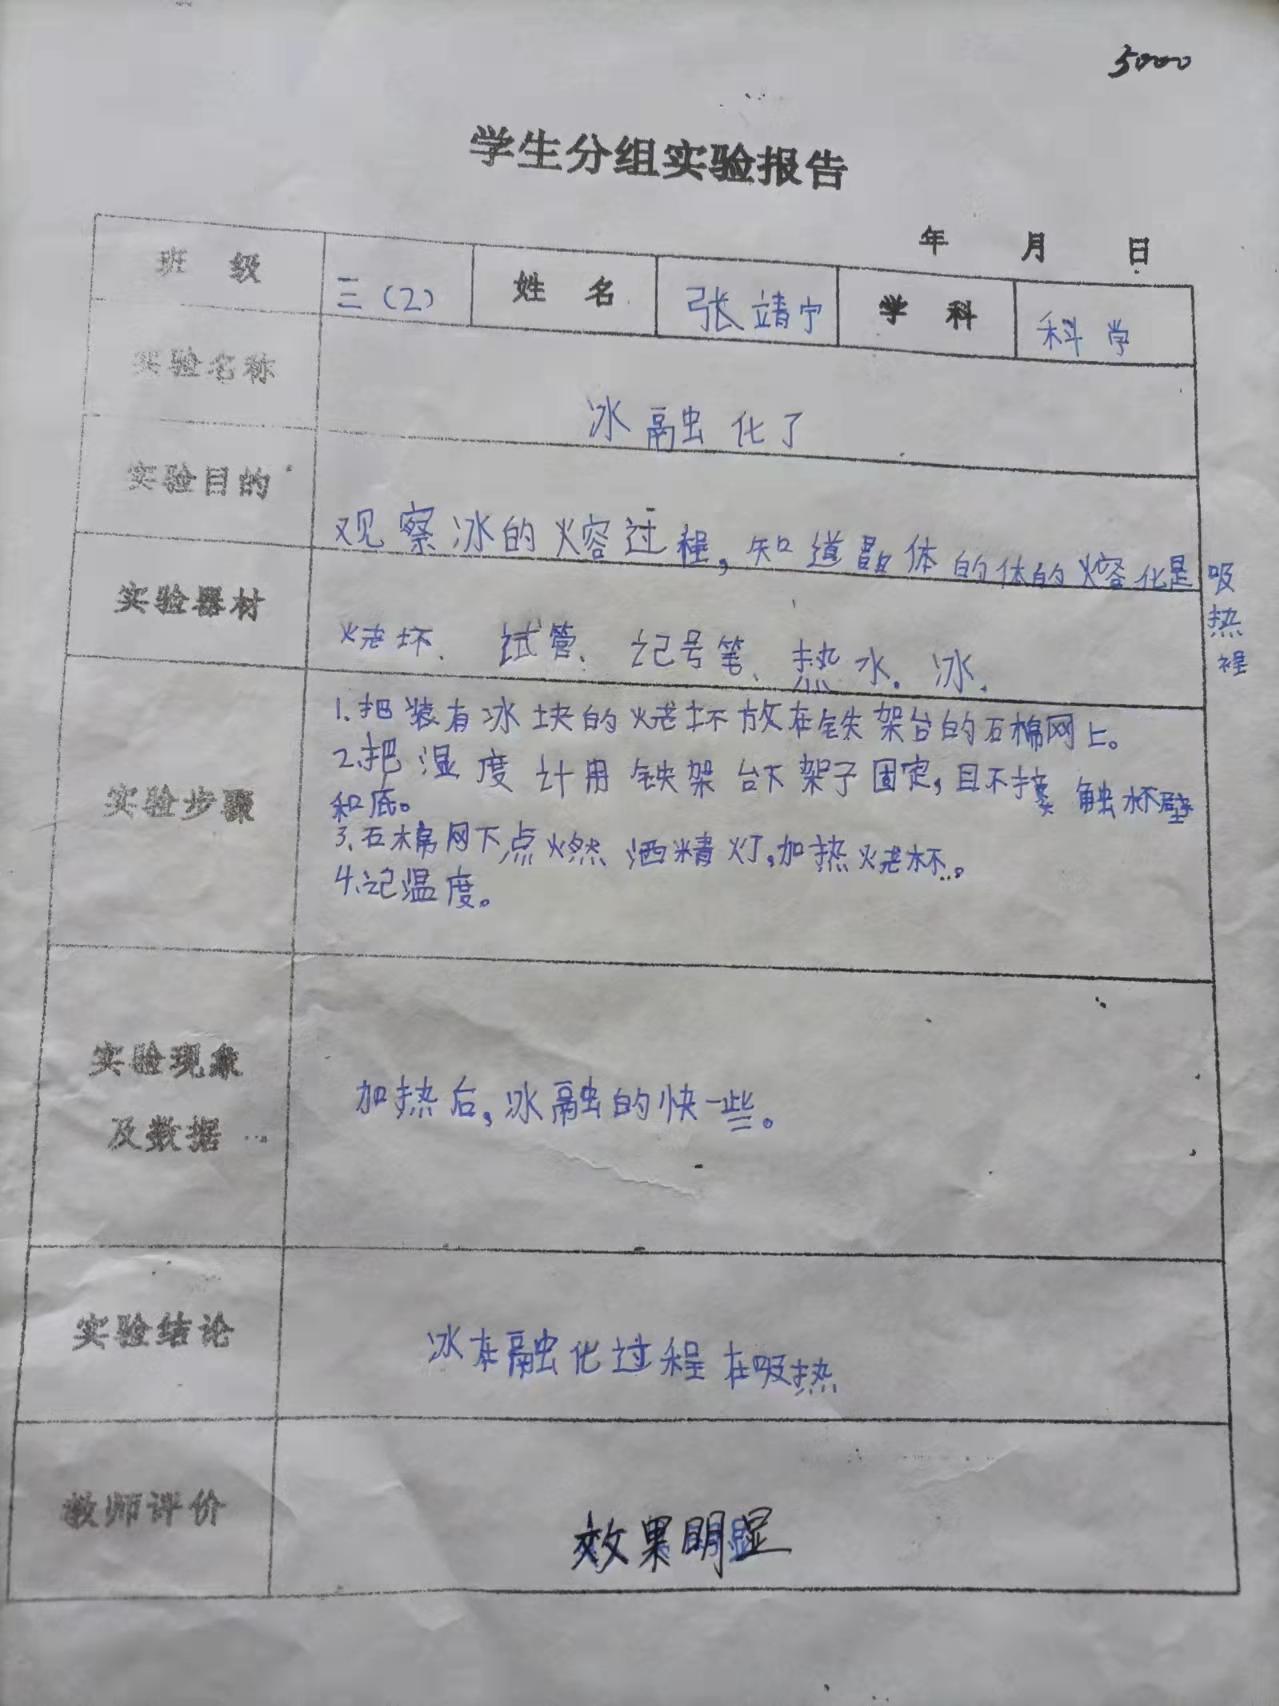 5000
学生分组实验报告
年 月 日
班 级 三(2) 姓 名 张靖宁 学 科 科学
实验名称 冰融化了
实验目的 观察冰的熔过程,知道晶体的体的熔化是吸
热
程
实验器材 烧坏、试管、记号笔、热水。冰.
实验步骤
1.把装有冰块的烧坏放在铁架台的石棉网上。
2.把湿度计用铁架台下架子固定,且不接触杯壁
和底。
3.石棉网下点燃洒精灯,加热烧杯。
4.记温度。
实验现象
及数据
加热后,冰融的快一些。
实验结论 冰在融化过程在吸热
教师评价 效果明显